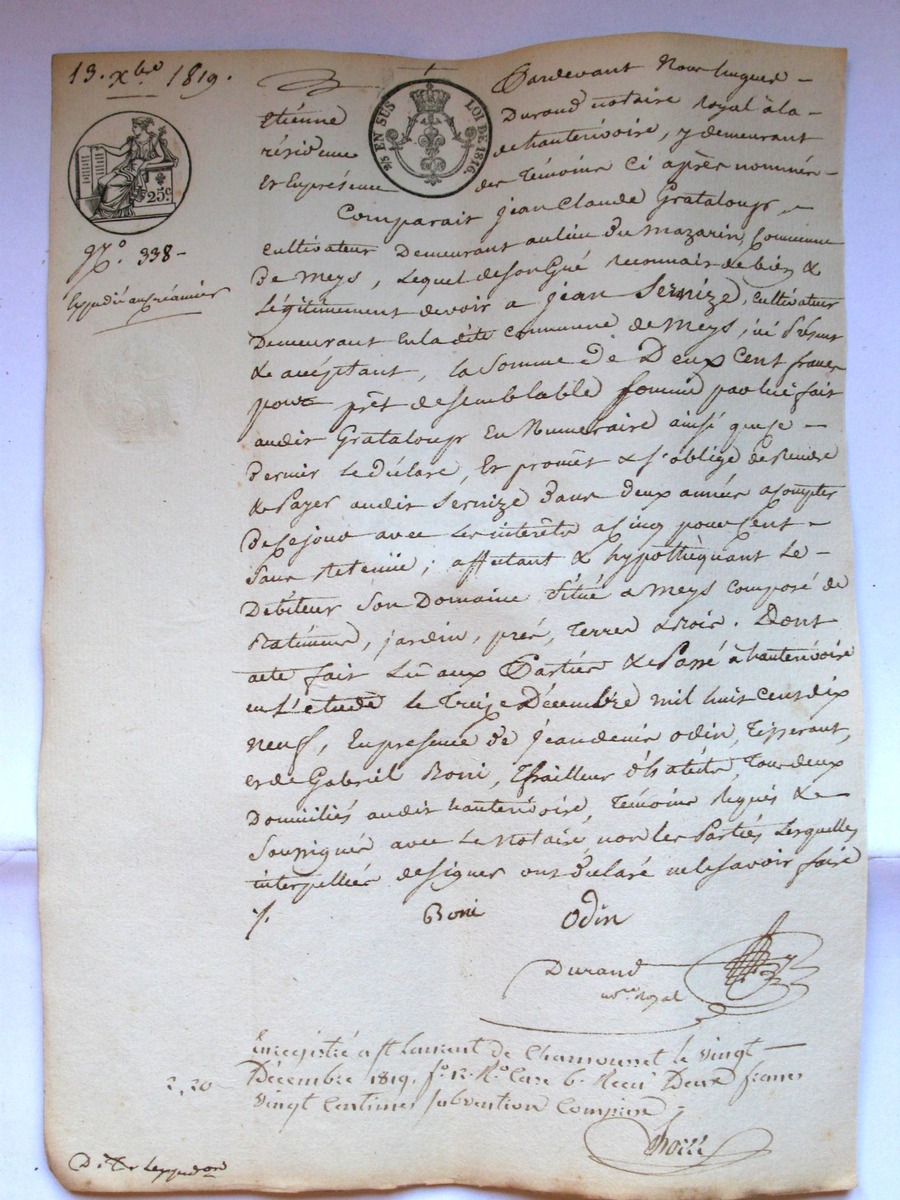 13. Xbre 1819.
25c
N.o 338-
25 EN SUS LOI DE 1816.
Pardevant Nous hugues
Etienne Durand notaire royal à la
résidence de hauterivoire, y demeurant
Et En présence des Témoins Ci après nommés
Comparait jean Claude Grataloup,
cultivateur Demeurant au lieu du mazarin, Commune
De meys, Lequel de son Gré reconnait de bien &
Légitimement devoir a jean Sernize, cultivateur
Demeurant En la dite commune de meys, ici Présent
& acceptant, la Somme de Deux cent francs
pour prêt de semblable somme par lui fait
audit Grataloup En Numeraire ainsi que ce
dernier Le déclare, Et promet & s'oblige de Rendre
& Payer audit Sernize dans deux années a compter
de ce jour avec Les interêts a cinq pour Cent
Sans Retenüe; affectant & hypothèquant Le
Débiteur Son Domaine Situé a meys composé de
Batimens, jardin, prés, Terres & bois. Dont
acte fait Lû aux Parties & Passé à hauterivoire
en L'étude le Treize Décembre mil huit cent dix
neuf, En présence de jean denis odin, Tisserant,
et de Gabriel Boni, Tailleur d'habits, Tous deux
Domiciliés audit hauterivoire, Témoins Requis &
Soussignés avec Le notaire non les Parties Lesquelles
interpellées de signer ont déclaré ne le savoir faire
/. Boni Odin
Durand
nre royal
Enregistré a St Laurent de Chamousset le vingt
2,20
Décembre 1819. fo 12. Ro Case 6. Recu Deux francs
vingt Centimes subvention Comprise